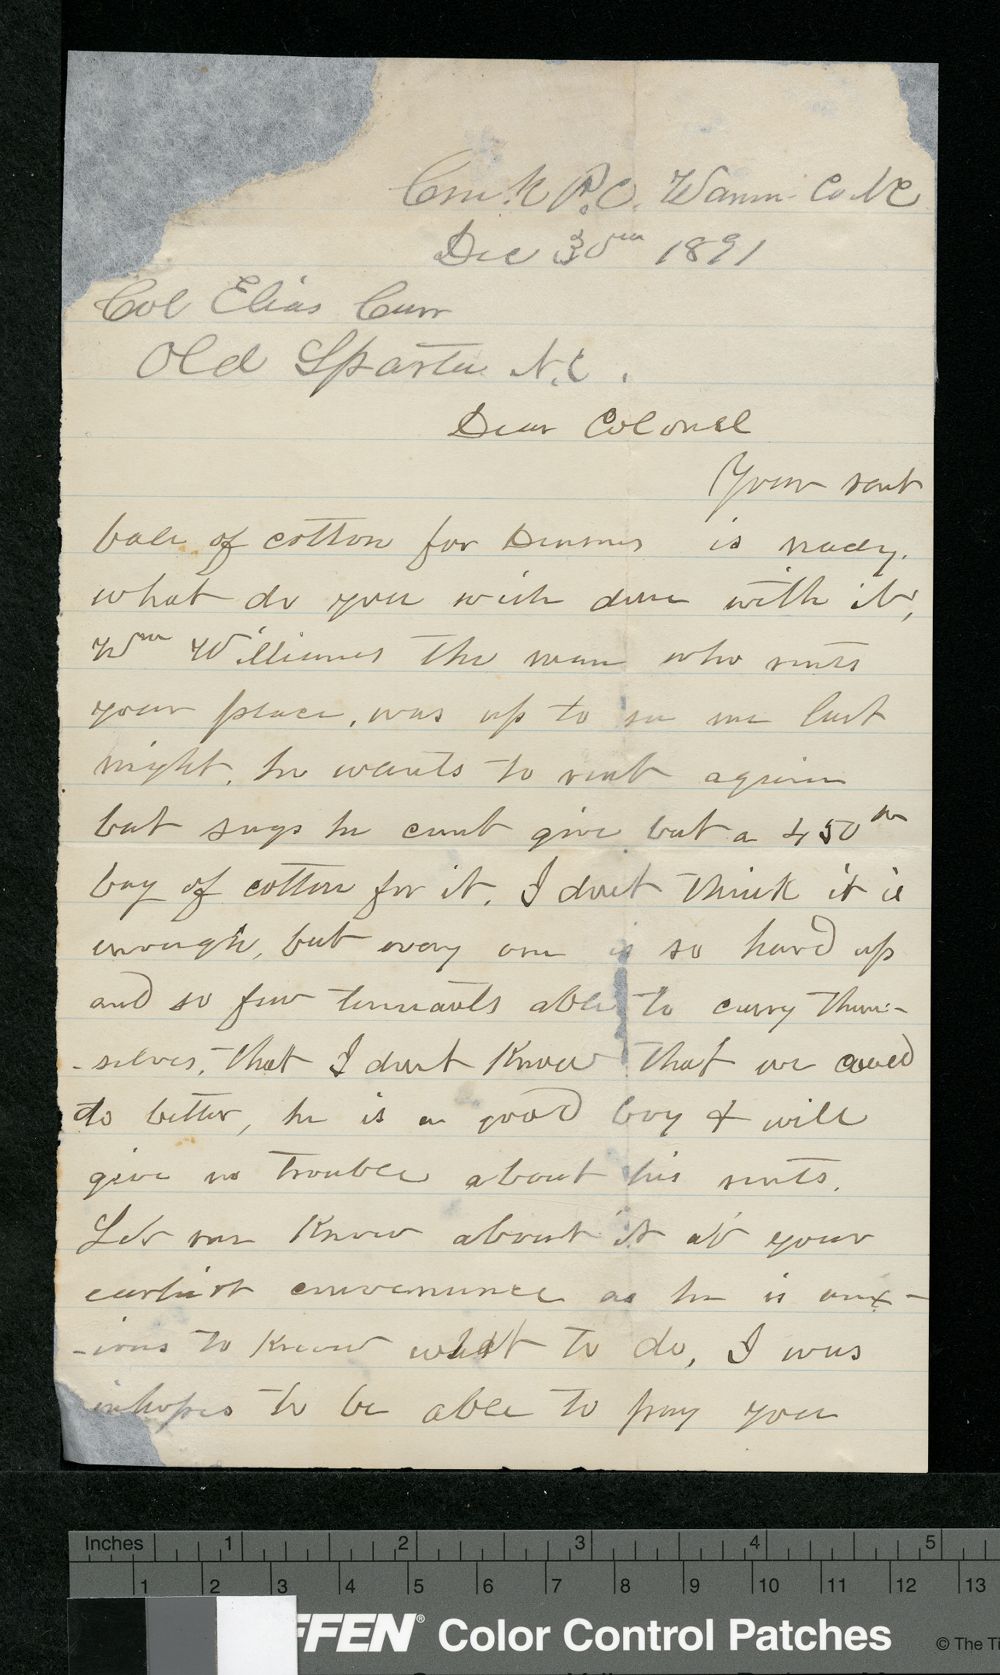 P.O. Warren Co NC
Dec 30th 1891
Col Elias Carr
Old Sparta N.C.
Dear Colonel
Your rent
bale of cotton for is ready.
what do you wish done with it,
Wm Williams the man who rents
your place, was up to see me last
night, he wants to rent again
but says he cant give but a 450 lb
bag of cotton for it, I dont think it is
enough, but every one is so hard up
and so few tennants able to carry them-
-selves, that I dont know that we could
do better, he is a good boy & will
give no trouble about his rents.
Let me know about it at your
earliest convenience as he is anx-
-ious to know what to do, I was
in hopes to be able to pay you
Inches 1 2 3 4 5
1 2 3 4 5 6 7 8 9 10 11 12 13
FFEN® Color Control Patches
© The Ti